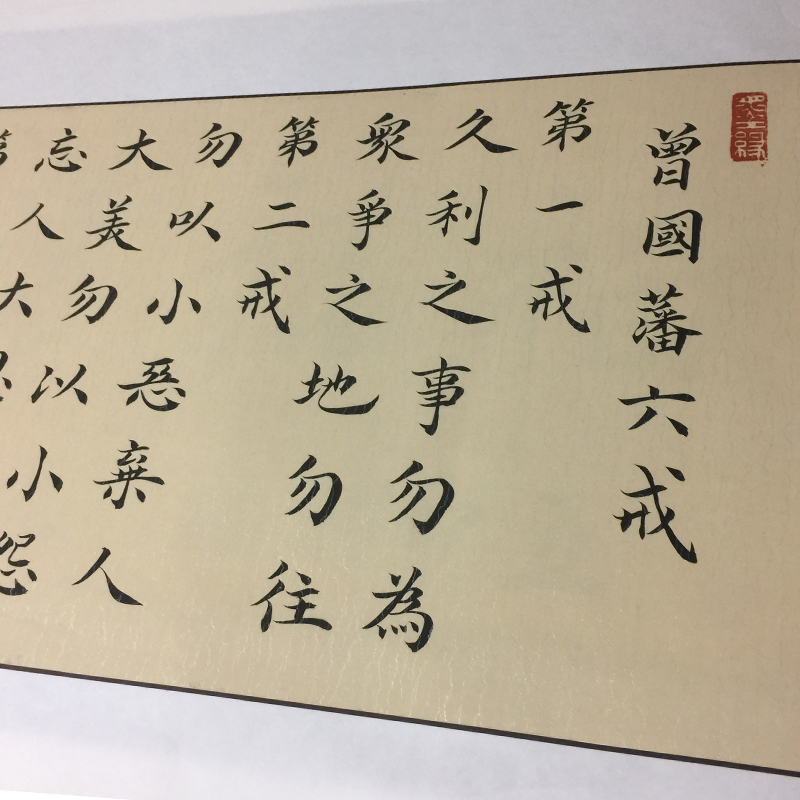 曾國藩六戒
第一戒
久利之事勿為
衆爭之地勿往
第二戒
勿以小惡棄人
大美勿以小怨
忘人大